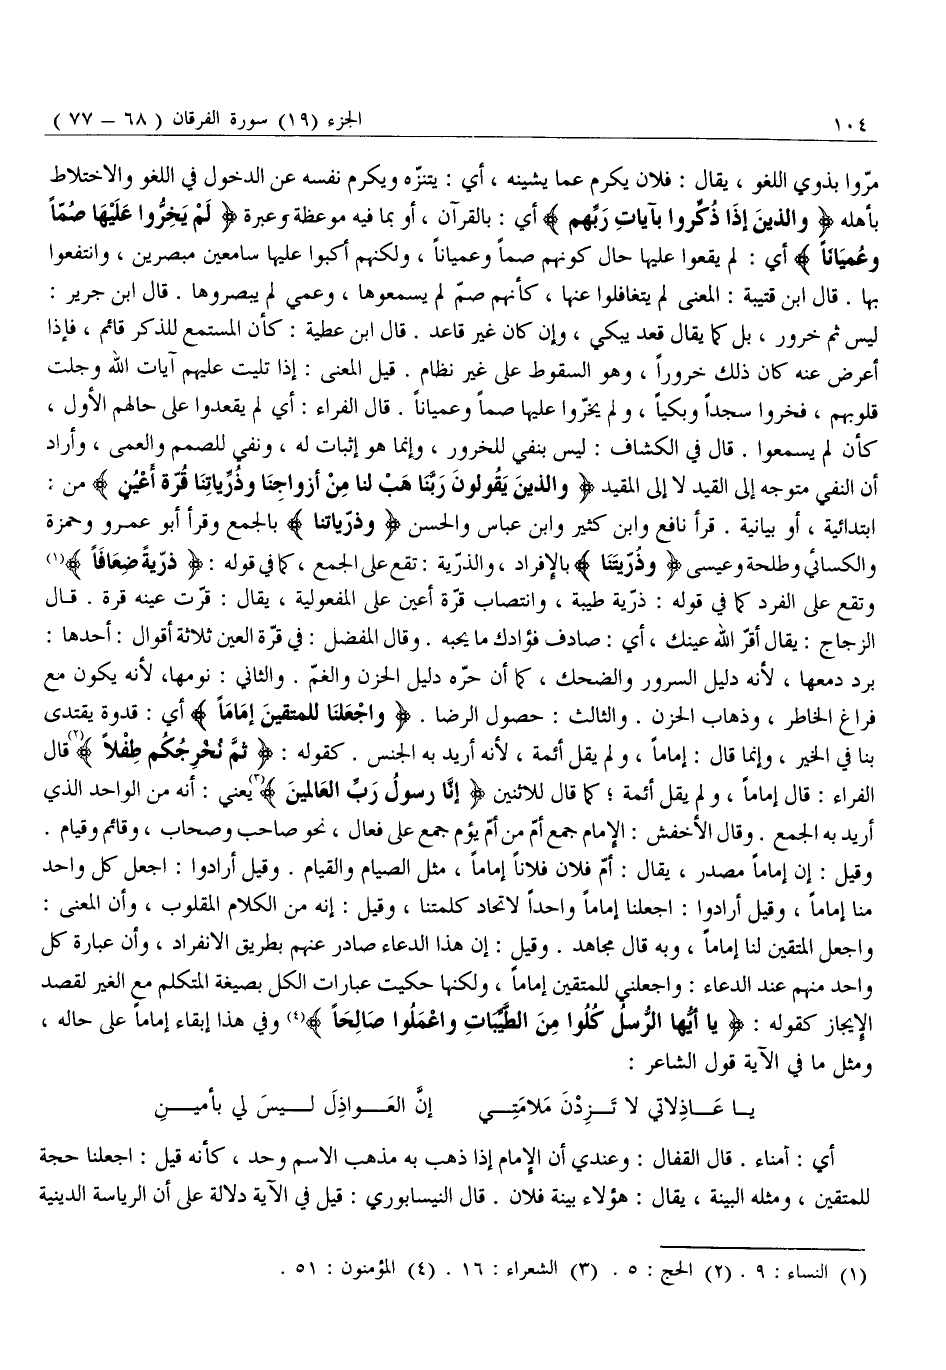 ١٠٤ الجزء (١٩) سورة الفرقان ( ٦٨ – ٧٧ )
مرّوا بذوي اللغو ، يقال : فلان يكرم عما يشينه ، أي : يتنزّه ويكرم نفسه عن الدخول في اللغو والاختلاط
بأهله ﴿ والذينَ إذَا ذُكِّروا بآياتِ رَبِّهم ﴾ أي : بالقرآن ، أو بما فيه موعظة وعبرة ﴿ لَمْ يَخِرُّوا عَلَيْهَا صُمّاً
وعُميَاناً ﴾ أي : لم يقعوا عليها حال كونهم صماً وعمياناً ، ولكنهم أكبوا عليها سامعين مبصرين ، وانتفعوا
بها . قال ابن قتيبة : المعنى لم يتغافلوا عنها ، كأنهم صمّ لم يسمعوها ، وعمي لم يبصروها . قال ابن جرير :
ليس ثم خرور ، بل كما يقال قعد يبكي ، وإن كان غير قاعد . قال ابن عطية : كأن المستمع للذكر قائم ، فإذا
أعرض عنه كان ذلك خروراً ، وهو السقوط على غير نظام . قيل المعنى : إذا تليت عليهم آيات الله وجلت
قلوبهم ، فخروا سجداً وبكياً ، ولم يخرّوا عليها صماً وعمياناً . قال الفراء : أي لم يقعدوا على حالهم الأول ،
كأن لم يسمعوا . قال في الكشاف : ليس بنفي للخرور ، وإنما هو إثبات له ، ونفي للصمم والعمى ، وأراد
أن النفي متوجه إلى القيد لا إلى المقيد ﴿ والذينَ يَقُولونَ رَبَّنَا هَبْ لنا مِنْ أزواجِنَا وذُرِّياتِنَا قُرّة أَعْيُنٍ ﴾ من :
ابتدائية ، أو بيانية . قرأ نافع وابن كثير وابن عباس والحسن ﴿ وذرّياتنا ﴾ بالجمع وقرأ أبو عمرو وحمزة
والكسائي وطلحة وعيسى ﴿ وذُرّيتَنَا ﴾ بالإفراد ، والذرّية : تقع على الجمع ، كما في قوله : ﴿ ذرّيةً ضِعَافَاً ﴾(١)
وتقع على الفرد كما في قوله : ذرّية طيبة ، وانتصاب قرّة أعين على المفعولية ، يقال : قرّت عينه قرة . قال
الزجاج : يقال أقرّ الله عينك ، أي : صادف فؤادك ما يحبه . وقال المفضل : في قرّة العين ثلاثة أقوال : أحدها :
برد دمعها ، لأنه دليل السرور والضحك ، كما أن حرّه دليل الحزن والغمّ . والثاني : نومها، لأنه يكون مع
فراغ الخاطر ، وذهاب الحزن . والثالث : حصول الرضا . ﴿ واجْعَلنَا للمتقينَ إمَامَاً ﴾ أي : قدوة يقتدى
بنا في الخير ، وإنما قال : إماماً ، ولم يقل أئمة ، لأنه أريد به الجنس . كقوله : ﴿ ثمَّ نُخْرِجُكُم طِفْلاً ﴾(٢) قال
الفراء : قال إماماً ، ولم يقل أئمة ؛ كما قال للاثنين ﴿ إنَّا رسولُ رَبِّ العَالمينَ ﴾(٣) يعني : أنه من الواحد الذي
أريد به الجمع . وقال الأخفش : الإمام جمع أمّ من أمّ يؤم جمع على فعال ، نحو صاحب وصحاب ، وقائم وقيام .
وقيل : إن إماماً مصدر ، يقال : أمّ فلان فلاناً إماماً ، مثل الصيام والقيام . وقيل أرادوا : اجعل كل واحد
منا إماماً ، وقيل أرادوا : اجعلنا إماماً واحداً لاتحاد كلمتنا ، وقيل : إنه من الكلام المقلوب ، وأن المعنى :
واجعل المتقين لنا إماماً ، وبه قال مجاهد . وقيل : إن هذا الدعاء صادر عنهم بطريق الانفراد ، وأن عبارة كل
واحد منهم عند الدعاء : واجعلني للمتقين إماماً ، ولكنها حكيت عبارات الكل بصيغة المتكلم مع الغير لقصد
الإيجاز كقوله : ﴿ يا أيُّها الرُّسلُ كُلُوا مِنَ الطَّيِّبَاتِ واعْمَلُوا صَالِحَاً ﴾(٤) وفي هذا إبقاء إماماً على حاله ،
ومثل ما في الآية قول الشاعر :
يا عَاذِلاتي لا تَزِدْنَ مَلامَتِي إنَّ العَواذِلَ ليسَ لي بأمينِ
أي : أمناء . قال القفال : وعندي أن الإمام إذا ذهب به مذهب الاسم وحد ، كأنه قيل : اجعلنا حجة
للمتقين ، ومثله البينة ، يقال : هؤلاء بينة فلان . قال النيسابوري : قيل في الآية دلالة على أن الرياسة الدينية
(١) النساء : ٩ . (٢) الحج : ٥ . (٣) الشعراء : ١٦ . (٤) المؤمنون : ٥١ .